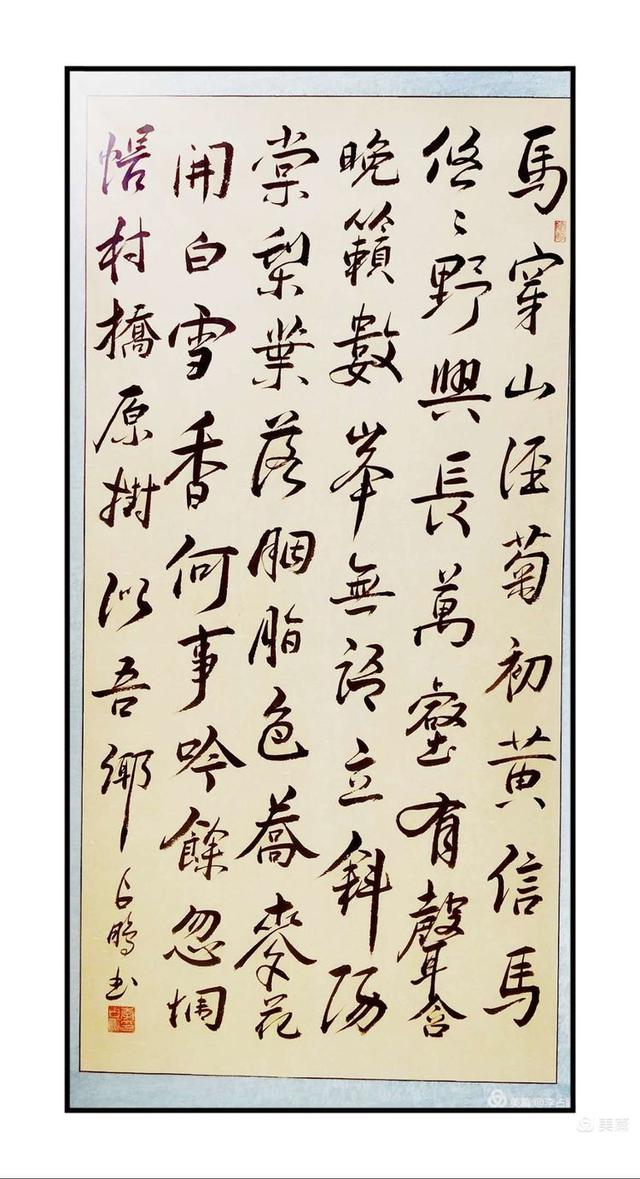 馬穿山徑菊初黃信馬
悠〻野興長萬壑有聲含
晚籟數峯無語立斜陽
棠梨葉落胭脂色蕎麥花
開白雪香何事吟餘忽惆
悵村橋原樹似吾鄉
占鵬书
美篇@李占
美篇